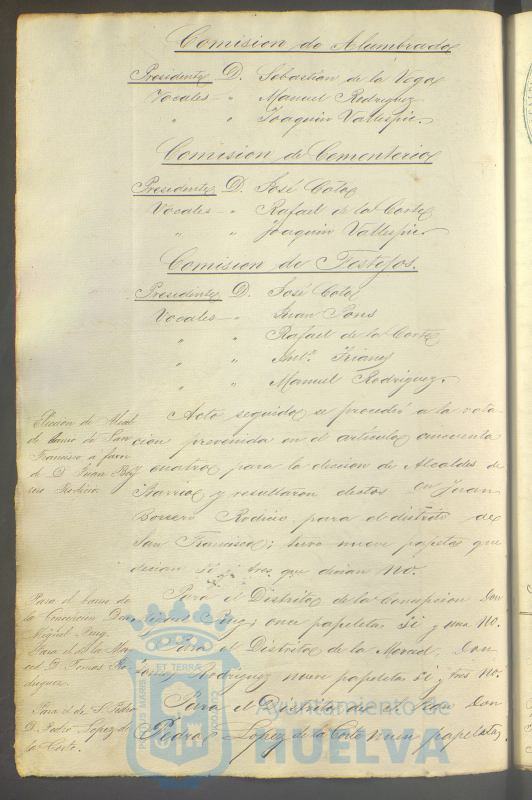 Comision de Alumbrado
Presidente D. Sebastian de la Vega
Vocales - " Manuel Rodriguez
" " Joaquin Vallespin.
Comision de Cementerio
Presidente D. José Coto
Vocales - " Rafael de la Corte
" " Joaquin Vallespin
Comision de Festejos.
Presidente D. José Coto
Vocales - " Juan Pons
" " Rafael de la Corte
" " Ant.º
" " Manuel Rodriguez.
Acto seguido se procedió a la vota-
cion prevenida en el artículo cincuenta
cuatro para la eleccion de Alcaldes de
Barrio y resultaron electos Juan
Borrero Rodicio para el distrito de
San Francisco; tuvo nueve papeletas que
decian sí y tres que decian no.
Para el Distrito de la Concepcion Don
Miguel Puig; once papeletas sí y una no.
Para el Distrito de la Merced, Don
Tomas Rodriguez nueve papeletas sí y tres no.
Para el Distrito de San Don
Pedro Lopez de la Corte nueve papeletas
Eleccion de Alcal-
de barrio de San
Francisco a favor
de D. Juan Bo-
rrero Rodicio
Para el barrio de
la Concepcion Don
Miguel Puig.
Para el de la Mer-
ced D. Tomas Ro-
driguez.
Para el de S. Pedro
D. Pedro Lopez de
la Corte.
PORTUS MARIS ET TERRÆ CUSTODIA
Ayuntamiento de
HUELVA